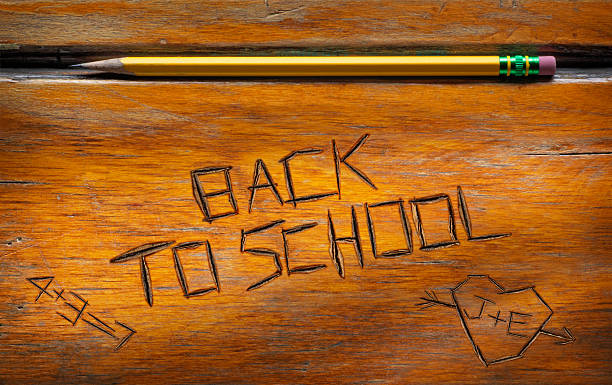 BACK
TO SCHOOL
4+3=7
J+E